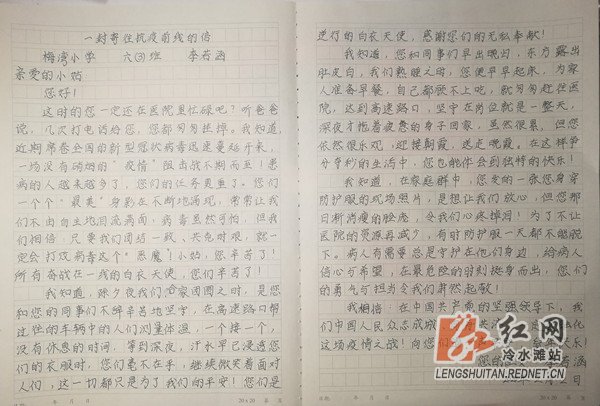 一封寄往抗疫前线的信
梅湾小学 六(3)班 李若涵
亲爱的小姑
您好!
这时的您一定还在医院里忙碌吧?听爸爸
说,几次打电话给您,都匆匆挂掉。我知道,
近期席卷全国的新型冠状病毒迅速蔓延开来,
一场没有硝烟的"疫情"阻击战不期而至!患
病的人越来越多了,您们的任务更重了。您们
一个个"最美"身影在不断地涌现,常常让我
们不由自主地泪流满面,病毒虽然可怕,但我
们相信,只要我们团结一致、共克时艰,就一
定会打败病毒这个"恶魔"!小姑,您辛苦了!
所有奋战在一线的白衣天使,您们辛苦了!
我知道,除夕夜我们合家团圆之时,是您
和您的同事们不辞辛苦地坚守,在高速路口帮
过往的车辆中的人们测量体温,一个接一个,
没有休息的时间,等到深夜,汗水早已浸透您
们的衣服时,您们毫不在乎,继续微笑着面对
人们,这一切都只是为了我们的平安!您们是
逆行的白衣天使,感谢您们的无私奉献!
我知道,您和同事们早出晚归,东方露出
肚皮白,我们熟睡之时,您便早早起床,为家
人准备早餐,自己都顾不上吃,就匆匆赶往医
院,达到高速路口,坚守在岗位就是一整天,
深夜才拖着疲惫的身子回家,虽然很累,但您
依然很乐观,迎接朝霞,送走晚霞。在这样争
分夺秒的生活中,您也能体会到独特的快乐!
我知道,在家庭群中,您发的一张您身穿
防护服的现场照片,是想让我们放心,但您那
日渐消瘦的脸庞,令我们心疼掉泪!为了不让
医院的资源再减少,有时防护服一天都不能脱
下。病人有需要总是守护在他们身边,给病人
信心与希望,在最危险的时刻挺身而出,您们
的勇气与担当令我们肃然起敬!
我相信,在中国共产党的坚强领导下,我
们中国人民众志成城
这场疫情之战!向您们
您的 李若涵
20×20
20×20
红网
冷水滩站
LENGSHUITAN.REDNET.CN